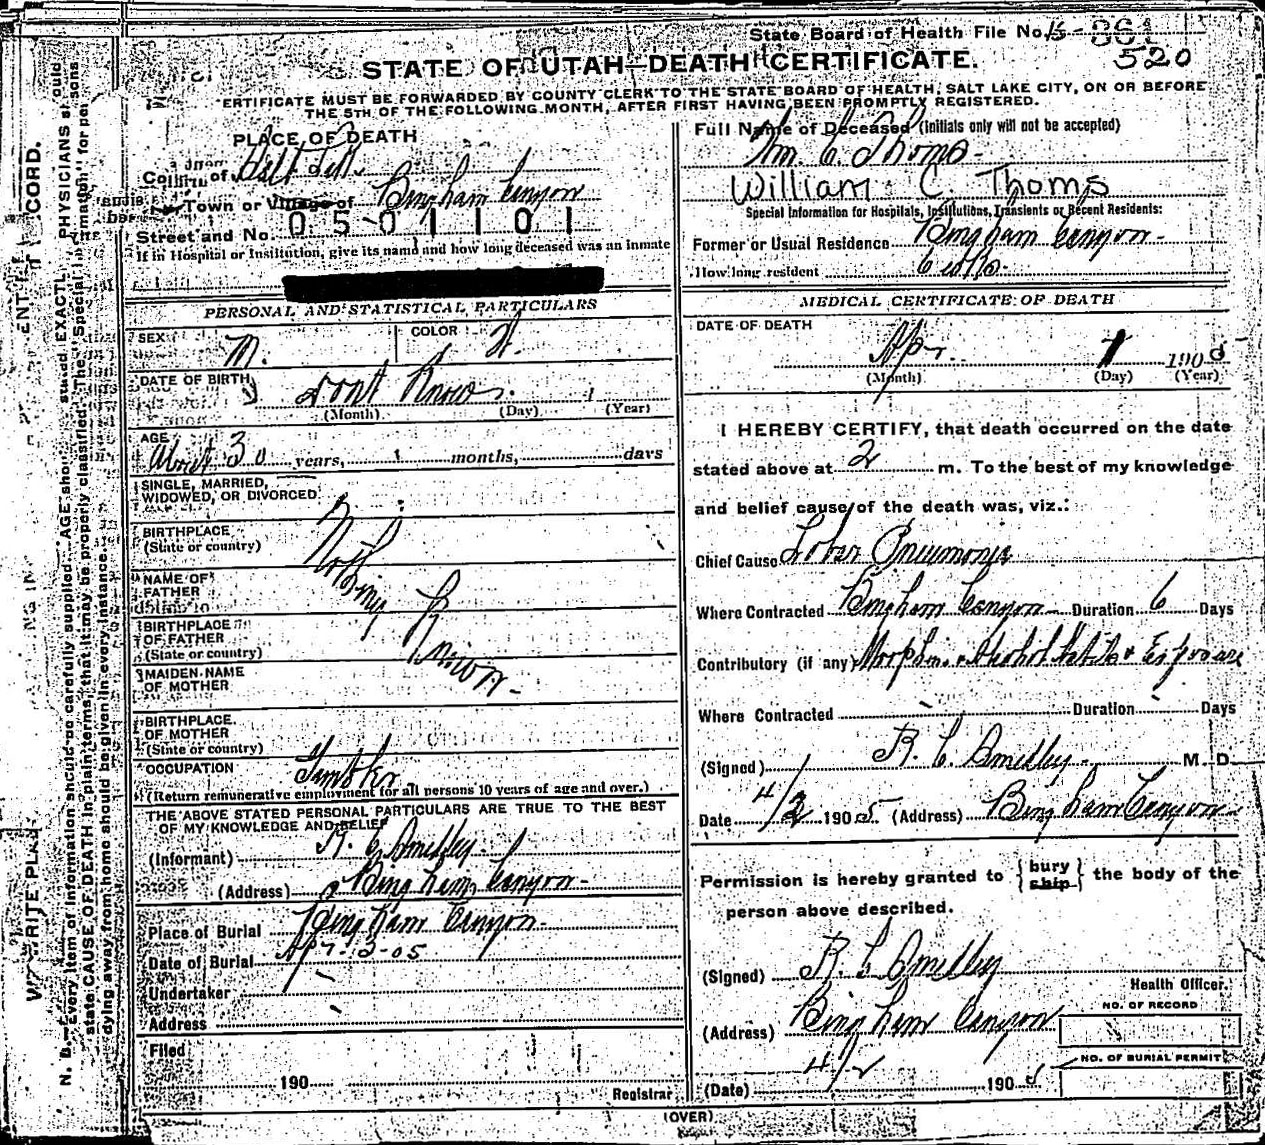 State Board of Health File No. 15-361
520
STATE OF UTAH—DEATH CERTIFICATE.
ERTIFICATE MUST BE FORWARDED BY COUNTY CLERK TO THE STATE BOARD OF HEALTH, SALT LAKE CITY, ON OR BEFORE
THE 5TH OF THE FOLLOWING MONTH, AFTER FIRST HAVING BEEN PROMPTLY REGISTERED.
PLACE OF DEATH
County of Salt Lake
Town or Village of Bingham Canyon
0 5 0 1 1 0 1
Street and No.
If in Hospital or Institution, give its name and how long deceased was an inmate
PERSONAL AND STATISTICAL PARTICULARS
SEX M.
COLOR W.
DATE OF BIRTH
dont Know.
(Month) (Day) (Year)
AGE
About 30 years, months, days
SINGLE, MARRIED,
WIDOWED, OR DIVORCED
BIRTHPLACE
(State or country)
NAME OF
FATHER
Nothing Known-
BIRTHPLACE
OF FATHER
(State or country)
MAIDEN NAME
OF MOTHER
BIRTHPLACE
OF MOTHER
(State or country)
OCCUPATION
(Return remunerative employment for all persons 10 years of age and over.)
THE ABOVE STATED PERSONAL PARTICULARS ARE TRUE TO THE BEST
OF MY KNOWLEDGE AND BELIEF
(Informant)
(Address) Bingham Canyon-
Place of Burial Bingham Canyon-
Date of Burial Apr-3-05
Undertaker
Address
Filed
190
Registrar
Full Name of Deceased (Initials only will not be accepted)
Wm. C. Thoms-
William C. Thoms
Special Information for Hospitals, Institutions, Transients or Recent Residents:
Former or Usual Residence Bingham Canyon-
How long resident
MEDICAL CERTIFICATE OF DEATH
DATE OF DEATH
Apr. 1 1905
(Month) (Day) (Year)
I HEREBY CERTIFY, that death occurred on the date
stated above at 2 m. To the best of my knowledge
and belief cause of the death was, viz.:
Chief Cause Lobar Pneumonia
Where Contracted Bingham Canyon- Duration 6 Days
Contributory (if any) Morphine & Alcohol Habits & Exposure
Where Contracted - Duration - Days
(Signed) M. D.
Date 4/2 1905 (Address) Bingham Canyon
Permission is hereby granted to { bury ship } the body of the
person above described.
(Signed)
Health Officer.
(Address) Bingham Canyon
NO. OF RECORD
NO. OF BURIAL PERMIT
(Date) 4/2 1905
(OVER)
N. B.—Every item of information should be carefully supplied. AGE should be stated EXACTLY. PHYSICIANS should
state CAUSE OF DEATH in plain terms, that it may be properly classified. The "Special Information" for persons
dying away from home should be given in every instance.